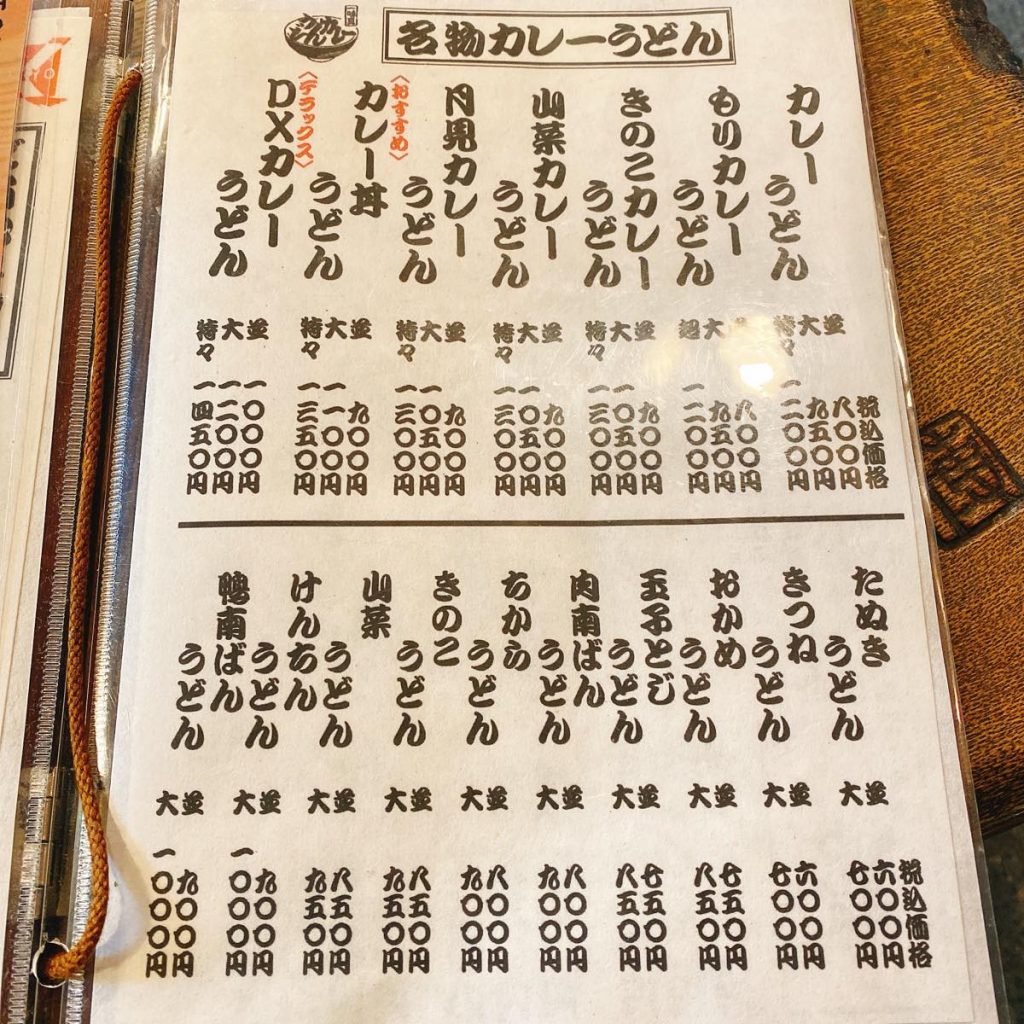 名物カレーうどん
税込価格
カレーうどん
並 八〇〇円
大 九五〇円
特々 一二〇〇円
もりカレーうどん
並 八〇〇円
大 九五〇円
超 一二〇〇円
きのこカレーうどん
並 九〇〇円
大 一〇五〇円
特々 一三〇〇円
山菜カレーうどん
並 九〇〇円
大 一〇五〇円
特々 一三〇〇円
月見カレーうどん
並 九〇〇円
大 一〇五〇円
特々 一三〇〇円
〈おすすめ〉
カレー丼うどん
並 九〇〇円
大 一一〇〇円
特々 一三五〇円
〈デラックス〉
DXカレーうどん
並 一〇〇〇円
大 一二〇〇円
特々 一四五〇円
税込価格
たぬきうどん
並 六〇〇円
大 七〇〇円
きつねうどん
並 六〇〇円
大 七〇〇円
おかめうどん
並 七五〇円
大 八五〇円
玉子とじうどん
並 七五〇円
大 八五〇円
肉南ばんうどん
並 八〇〇円
大 九〇〇円
ちからうどん
並 八〇〇円
大 九〇〇円
きのこうどん
並 八五〇円
大 九五〇円
山菜うどん
並 八五〇円
大 九五〇円
けんちんうどん
並 九〇〇円
大 一〇〇〇円
鴨南ばんうどん
並 九〇〇円
大 一〇〇〇円